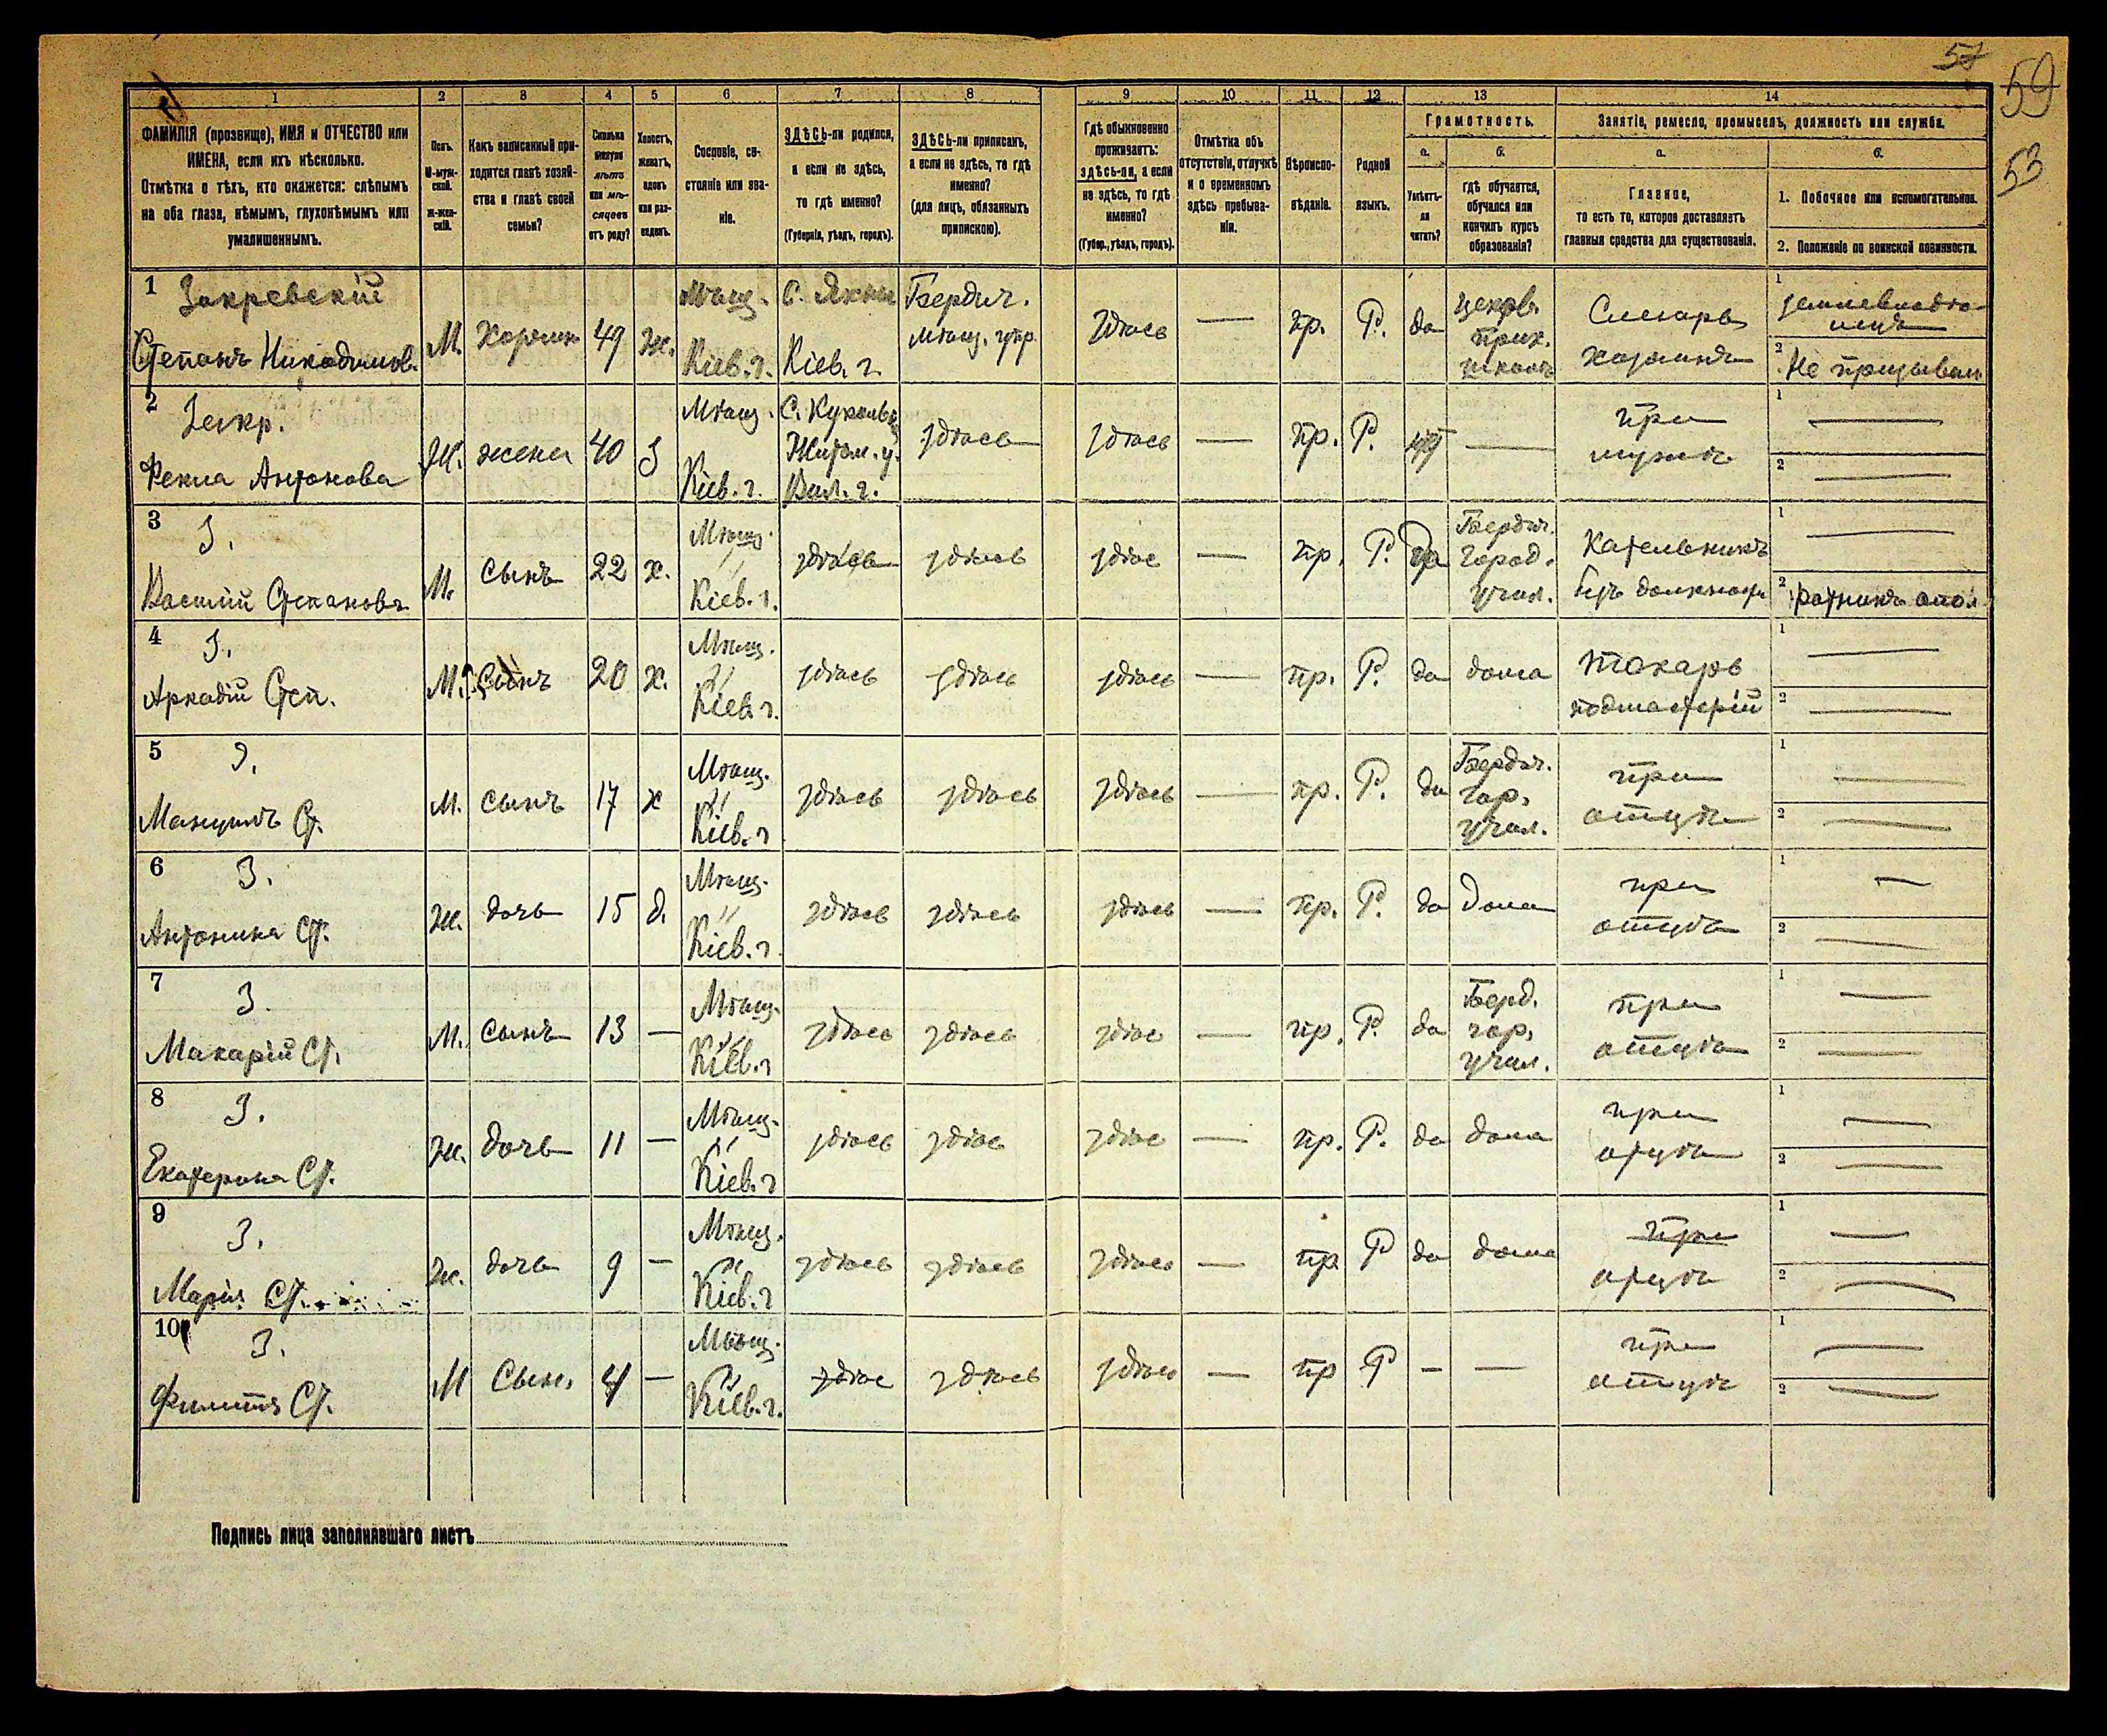 57
59
53
1
2
3
4
5
6
7
8
9
10
11
12
13
14
ФАМИЛІЯ (прозвище), ИМЯ и ОТЧЕСТВО или
ИМЕНА, если ихъ нѣсколько.
Отмѣтка о тѣхъ, кто окажется: слѣпымъ
на оба глаза, нѣмымъ, глухонѣмымъ или
умалишеннымъ.
Полъ.
М-муж-
ской.
ж-жен-
скій.
Какъ записанный при-
ходится главѣ хозяй-
ства и главѣ своей
семьи?
Сколько
минуло
лѣтъ
или мѣ-
сяцевъ
отъ роду?
Холостъ,
женатъ,
вдовъ
или раз-
веденъ.
Сословіе, со-
стояніе или зва-
ніе.
ЗДѢСЬ-ли родился,
а если не здѣсь,
то гдѣ именно?
(Губернія, уѣздъ, городъ).
ЗДѢСЬ-ли приписанъ,
а если не здѣсь, то гдѣ
именно?
(для лицъ, обязанныхъ
припискою).
Гдѣ обыкновенно
проживаетъ:
здѣсь-ли, а если
не здѣсь, то гдѣ
именно?
(Губер., уѣздъ, городъ).
Отмѣтка объ
отсутствіи, отлучкѣ
и о временномъ
здѣсь пребыва-
ніи.
Вѣроиспо-
вѣданіе.
Родной
языкъ.
Грамотность.
а.
Умѣетъ-
ли
читать?
б.
гдѣ обучается,
обучался или
кончилъ курсъ
образованія?
Занятіе, ремесло, промыселъ, должность или служба.
а.
Главное,
то есть то, которое доставляетъ
главныя средства для существованія.
б.
1. Побочное или вспомогательное.
2. Положеніе по воинской повинности.
1
Закревскій
Степанъ Никодимов.
М.
49
ж.
Мѣщ.
Кіев. г.
С.
Кіев. г.
Бердич.
мѣщ. упр.
здѣсь
—
пр.
Р.
да
церков.
прих.
школа
Слесарь
хозяинъ
1
землевладѣ-
лецъ
2
Не призывал
2
Закр.
Фекла Антонова
Ж.
жена
40
з
Мѣщ.
Кіев. г.
С.
Житом. у.
Вол. г.
здѣсь
здѣсь
—
пр.
Р.
—
при
мужѣ
1
—
2
—
3
З.
Василій Степановъ
М.
сынъ
22
х.
Мѣщ.
"
Кіев. г.
здѣсь
здѣсь
здѣс
—
пр.
Р.
да
Бердич.
город.
учил.
Котельникъ
безъ должност
1
—
2
ратникъ опол
4
З.
Аркадій Степ.
М.
Сынъ
20
х.
Мѣщ.
"
Кіев. г.
здѣсь
здѣсь
здѣсь
—
пр.
Р.
да
дома
токарь
подмастерій
1
—
2
—
5
З.
Мануилъ Ст.
М.
сынъ
17
х
Мѣщ.
"
Кіев. г
здѣсь
здѣсь
здѣсь
—
пр.
Р.
да
Бердич.
гор.
учил.
при
отцѣ
1
—
2
—
6
З.
Антонина Ст.
ж.
дочь
15
д.
Мѣщ.
"
Кіев. г
здѣсь
здѣсь
здѣсь
—
пр.
Р.
да
Дома
при
отцѣ
1
—
2
—
7
З.
Макарій Ст.
М.
сынъ
13
—
Мѣщ.
"
Кіев. г
здѣсь
здѣсь
здѣс
—
пр.
Р.
да
Берд.
гор.
учил.
при
отцѣ
1
—
2
—
8
З.
Екатерина Ст.
ж.
дочь
11
—
Мѣщ.
"
Кіев. г
здѣсь
здѣс
здѣс
—
пр.
Р.
да
дома
при
отцѣ
1
—
2
—
9
З.
Марія Ст.
ж.
дочь
9
—
Мѣщ.
"
Кіев. г
здѣсь
здѣсь
здѣсь
—
пр
Р
да
дома
при
отцѣ
1
—
2
—
10
З.
Филиппъ Ст.
М
Сынъ
4
—
Мѣщ.
"
Кіев. г.
здѣс
здѣсь
здѣсь
—
пр
Р
—
—
при
отцѣ
1
—
2
—
Подпись лица заполнявшаго листъ